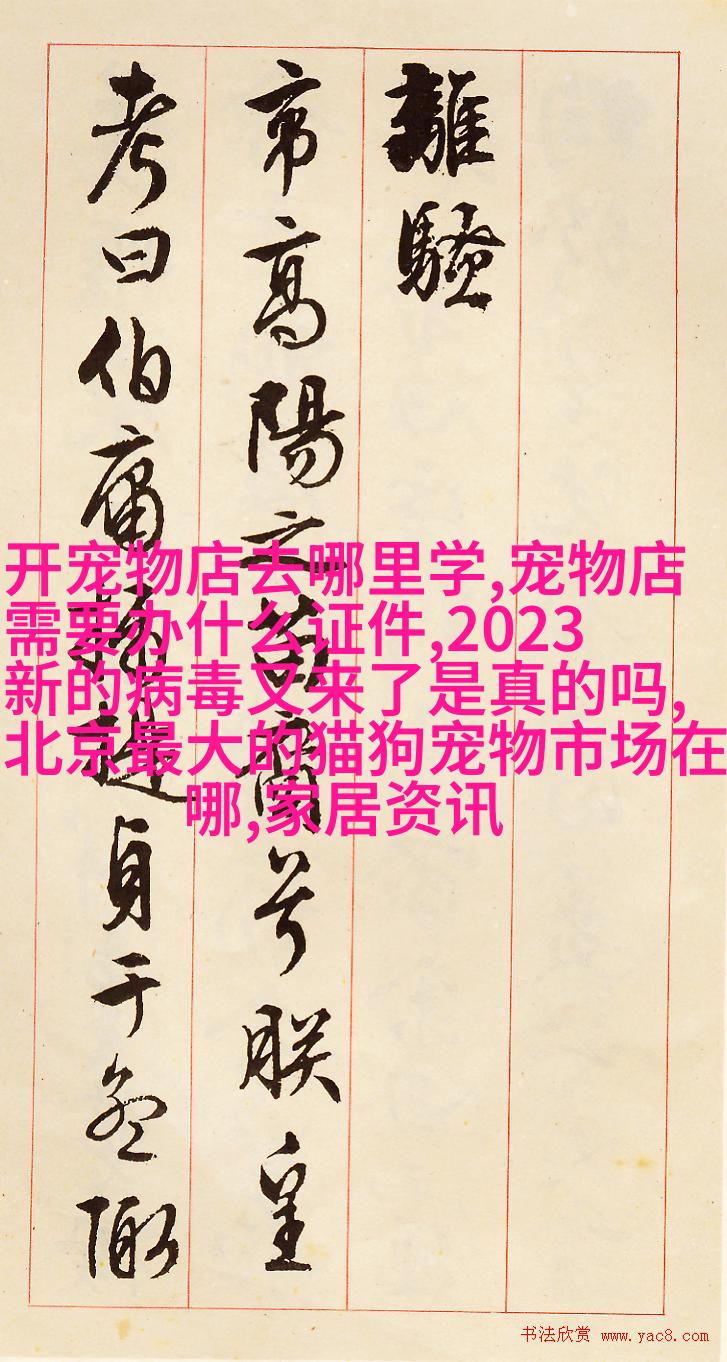 離騷
帝高陽之苗裔兮朕皇
考曰伯庸攝提貞于孟陬
开宠物店去哪里学,宠物店
需要办什么证件,2023
新的病毒又来了是真的吗,
北京最大的猫狗宠物市场在
哪,家居资讯
书法欣赏 www.yac8.com